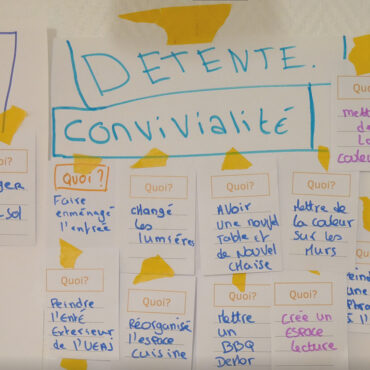 DETENTE.
CONVIVIALITÉ
Quoi?
mette
de
La
couleur
Quoi?
-sol
Quoi ?
Faire
enménagé
l'entrée
Quoi?
CHANGÉ
les
lumières
Quoi?
AVOIR
une nouvel
Table et
de Nouvel
CHAISE
Quoi?
Mettre de
la couleur
sur les
Murs
Quoi?
Peindre
l'Enté
Exterieur
de l'UEAJ
Quoi?
RÉORGANISÉ
l'espace
cuisine
Quoi?
Mettre
un
BBQ
Dehor
Quoi?
Crée un
ESPACE
lecture
une